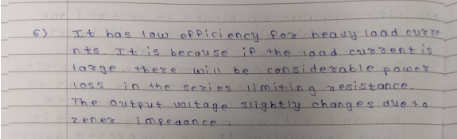 6) It has low efficiency for heavy load curre
nts. It is because if the load current is
large, there will be considerable power
loss in the series limiting resistance.
The output voltage slightly changes due to
zener impedance.